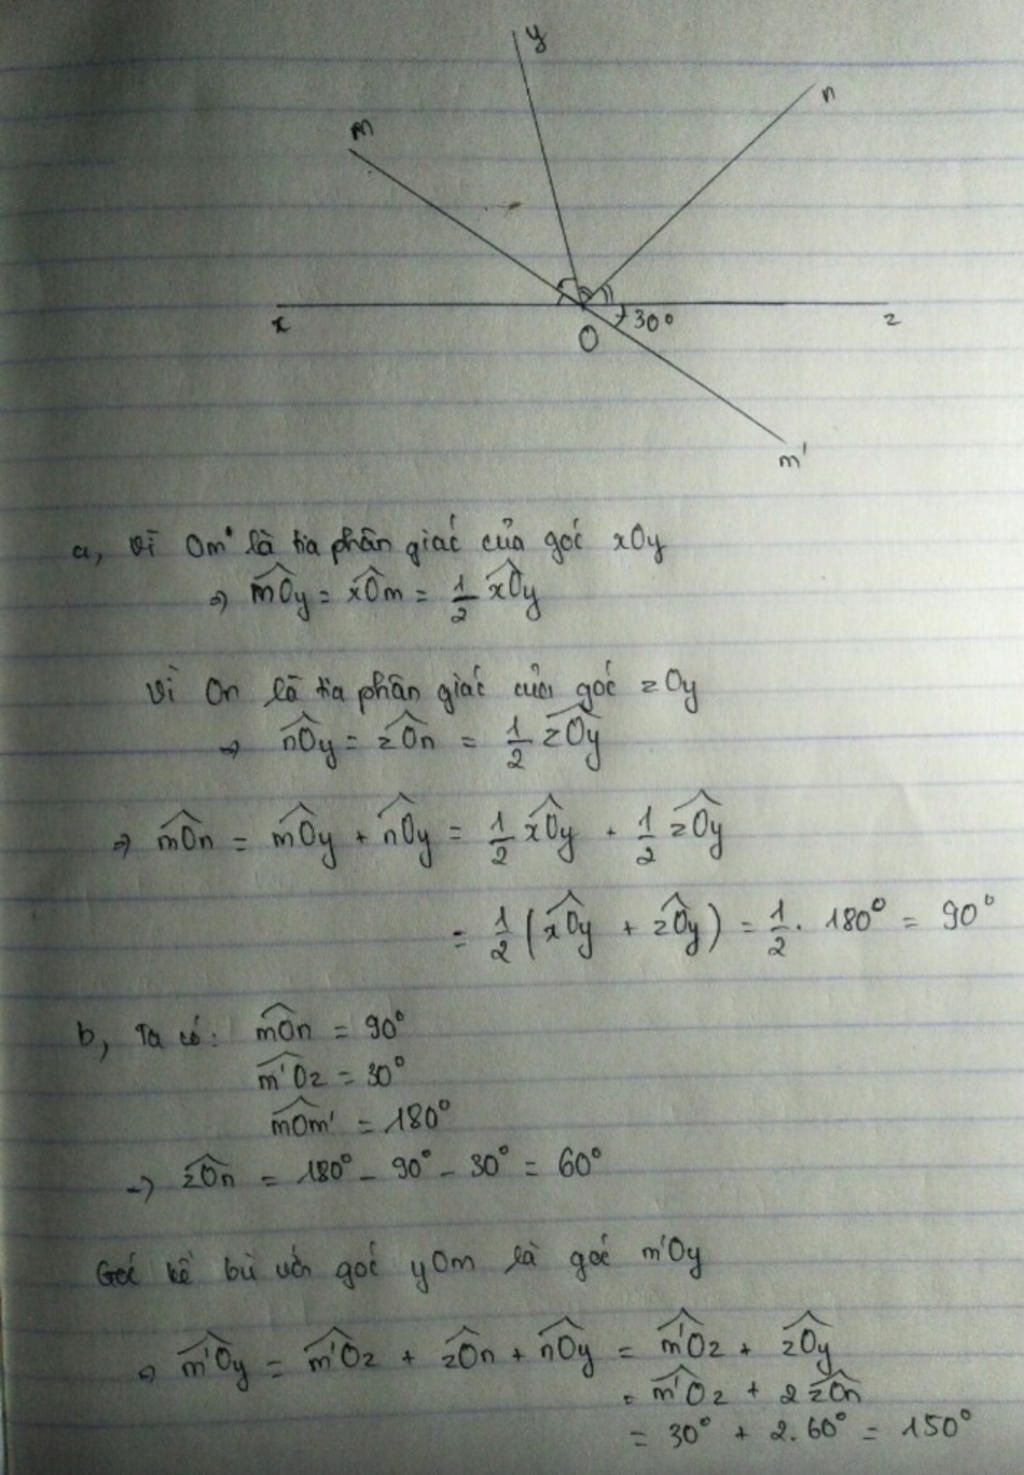 y
n
m
x
30°
z
O
m'
a, Vì Om' là tia phân giác của góc xOy
=> mOy = xOm = 1/2 xOy
Vì On là tia phân giác của góc zOy
=> nOy = zOn = 1/2 zOy
=> mOn = mOy + nOy = 1/2 xOy + 1/2 zOy
= 1/2 (xOy + zOy) = 1/2 . 180° = 90°
b, Ta có: mOn = 90°
m'Oz = 30°
mOm' = 180°
-> zOn = 180° - 90° - 30° = 60°
Góc kề bù với góc yOm là góc m'Oy
=> m'Oy = m'Oz + zOn + nOy = m'Oz + zOy
= m'Oz + 2 zOn
= 30° + 2.60° = 150°